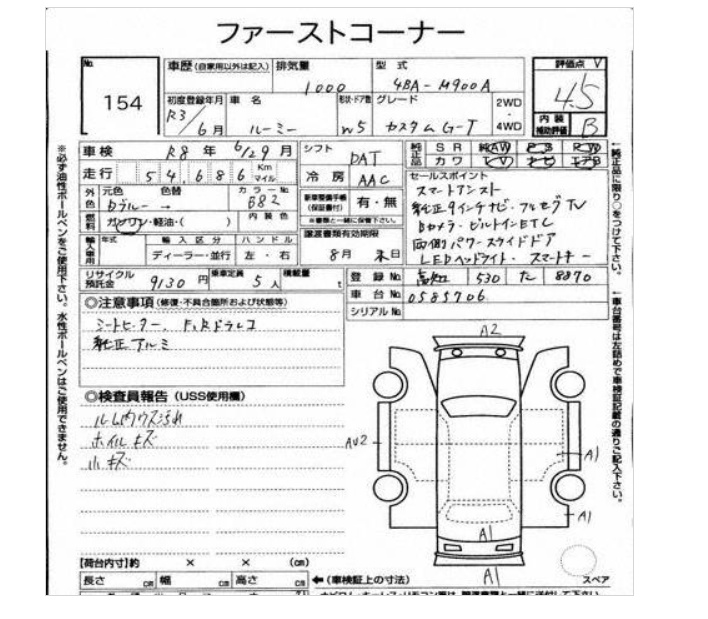 ファーストコーナー
No. 154
車歴 (自家用以外は記入) 排気量 1000 型式 4BA-M900A 評価点 V 4.5
初度登録年月 R3/6月 車名 ルーミー 形状・ドア数 W5 グレード カスタムG-T 2WD・4WD 内装補助評価 B
車検 R8年 6/29月 シフト DAT 純正品 SR 純AW PS PW
走行 54,686 Km マイル 冷房 AAC カワ TV ナビ エアB
外色 元色 Dブルー → 色替 カラーNo. B82 新車整備手帳(保証書付) 有・無 ※書類と一緒に保管下さい。
燃料 ガソリン・軽油・( ) 内装色 譲渡書類有効期限 8月末日
輸入車用 年式 輸入区分 ディーラー・並行 ハンドル 左・右
セールスポイント
スマートアシスト
純正9インチナビ・フルセグTV
Bカメラ・ビルトインETC
両側パワースライドドア
LEDヘッドライト・スマートキー
リサイクル預託金 9130円 乗車定員 5人 積載量 t 登録No. 高知 530 た 8870
車台No. 0585706
シリアルNo.
◎注意事項 (修復・不具合箇所および状態等)
シートヒーター F,Rドラレコ
純正アルミ
◎検査員報告 (USS使用欄)
ルーム内ウス汚れ
ホイルキズ
小キズ
A2
AU2
A1
A1
A1
A1
スペア
【荷台内寸】約 × × (cm)
長さ cm 幅 cm 高さ cm ←(車検証上の寸法)
※必ず油性ボールペンをご使用下さい。水性ボールペンはご使用できません。
←純正品に限り○をつけて下さい。
←車台番号は左詰めで車検証記載の通りご記入下さい。